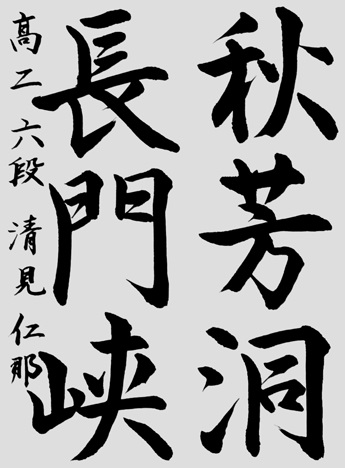 秋芳洞
長門峡
高二 六段 清見 仁那